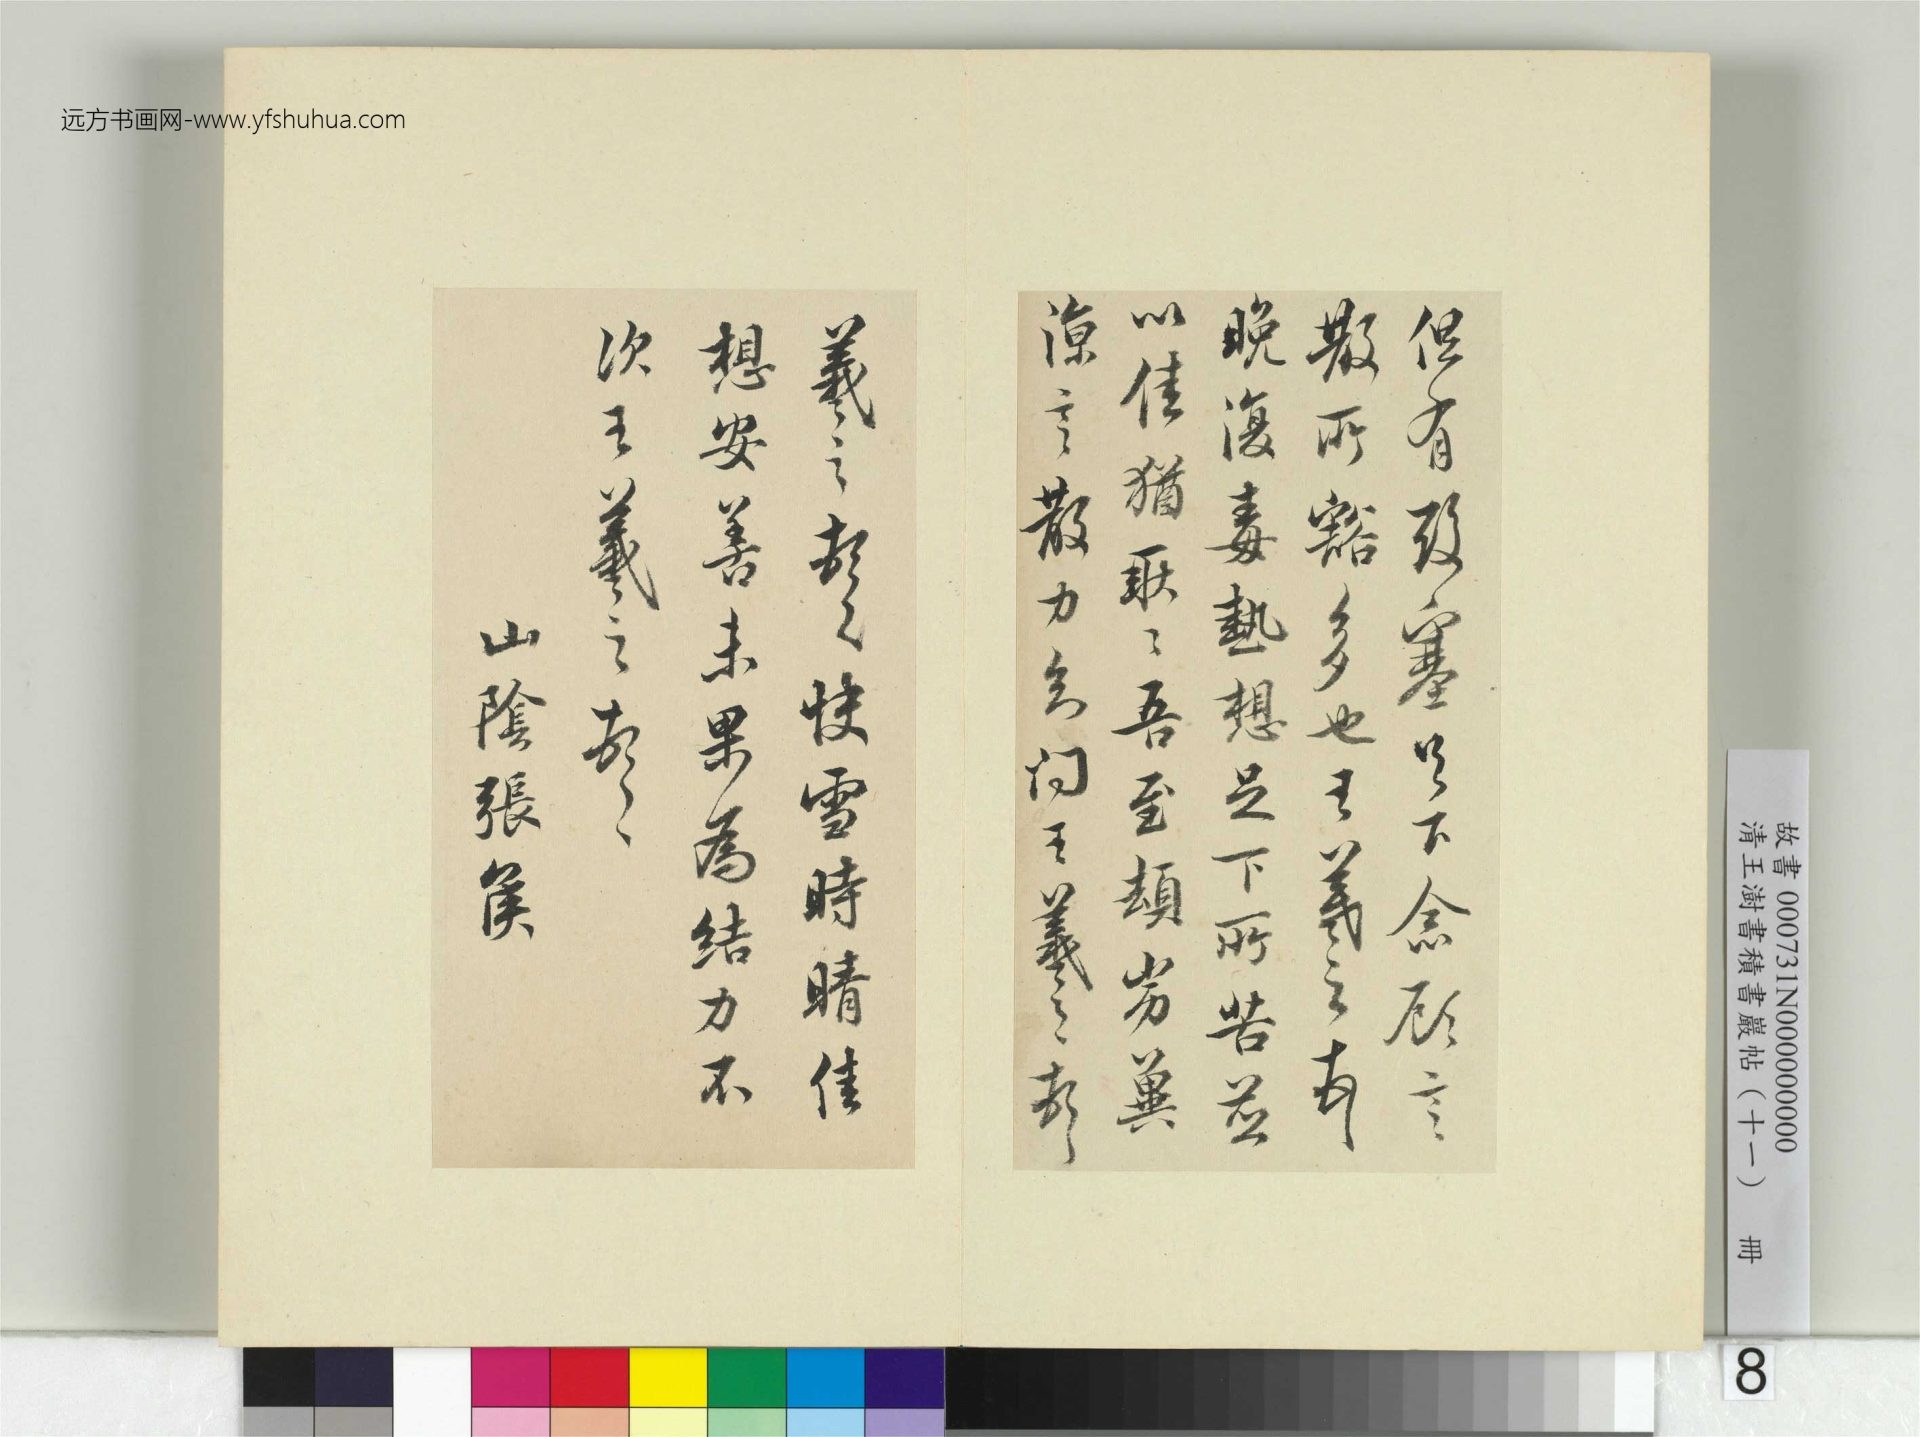 远方书画网-www.yfshuhua.com
但有致塞足下念顧言
散所豁多也王羲之頓首
晚復毒熱想足下所苦並
以佳猶耿〻吾至頓劣冀
涼言散力知問王羲之頓首
羲之頓首快雪時晴佳
想安善未果為結力不
次王羲之頓首
山陰張侯
故書 000731N000000000
清王澍書積書巖帖（十一） 冊
8